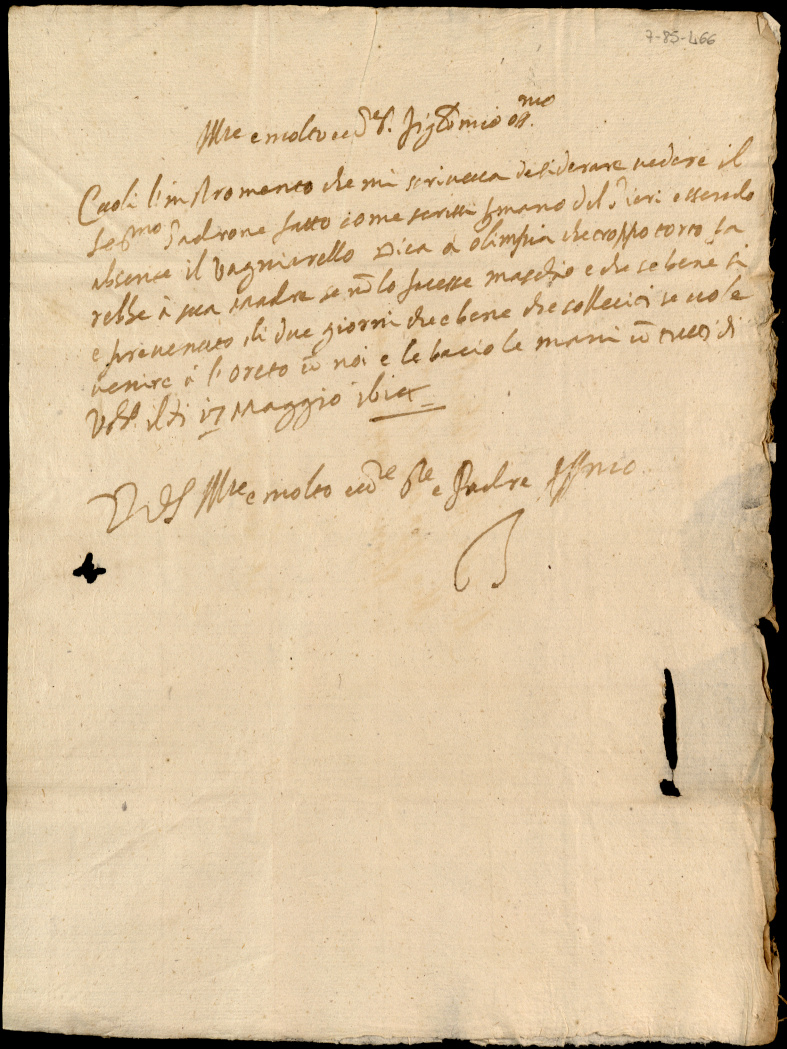 7-85-466
Ill.re e molto ecc.te S.r mio oss.mo
l'instromento che mi scriveva desiderare vedere il
Ser.mo Padrone fatto come scrissi p mano del Pieri essendo
absente il Vagniarello Dica a Olimpia che troppo torto fa
rebbe à sua madre se nõ lo facesse maschio e che se bene si
e prevenuto di due giorni che e bene che solleciti se vole
venire à l'Oreto cõ noi e le bacio le mani cõ tutti di
il di 17 Maggio
Ill.re e molto ecc.te e Padre